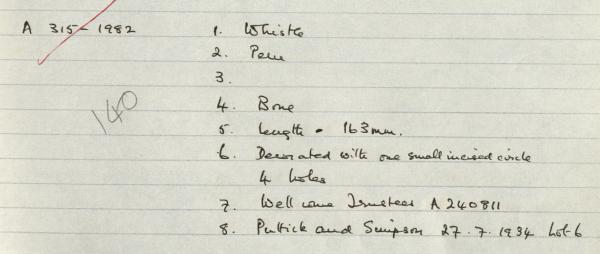 A 315-1982 1. Whistle
2. Peru
3.
140
4. Bone
5. Length = 163mm.
6. Decorated with one small incised circle
4 holes
7. Wellcome Trustees A 240811
8. Puttick and Simpson 27.7.1934 Lot 6